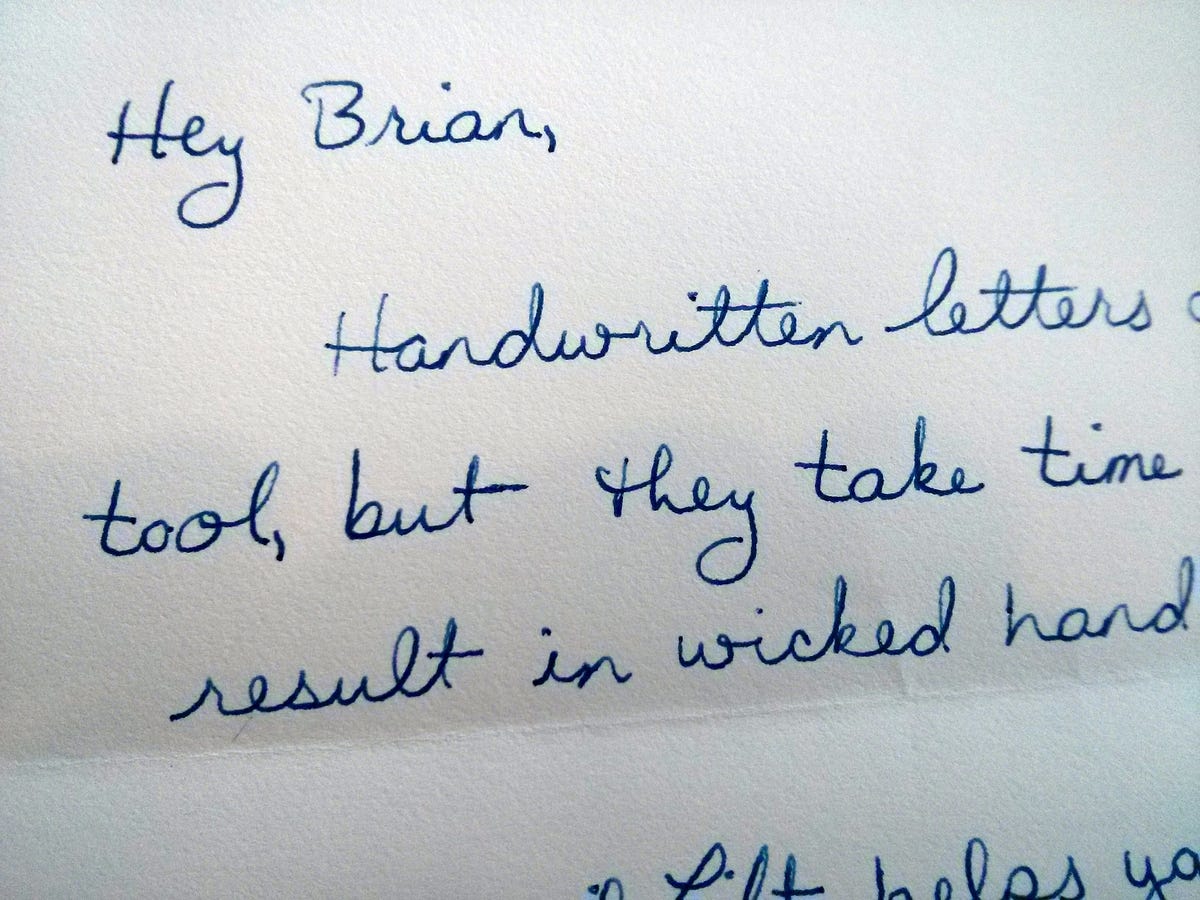 Hey Brian,
Handwritten letters
tool, but they take time
result in wicked hand
helps